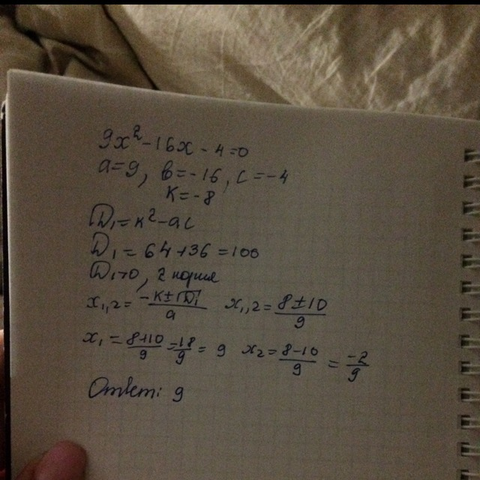 9x²-16x-4=0
a=9, b=-16, c=-4
K=-8
D₁=к²-ac
D₁=64+36=100
D₁>0, 2 корня
x₁,₂=(-к±√D₁)/a x₁,₂=(8±10)/9
x₁=(8+10)/9=18/9=9 x₂=(8-10)/9=-2/9
Ответ: 9